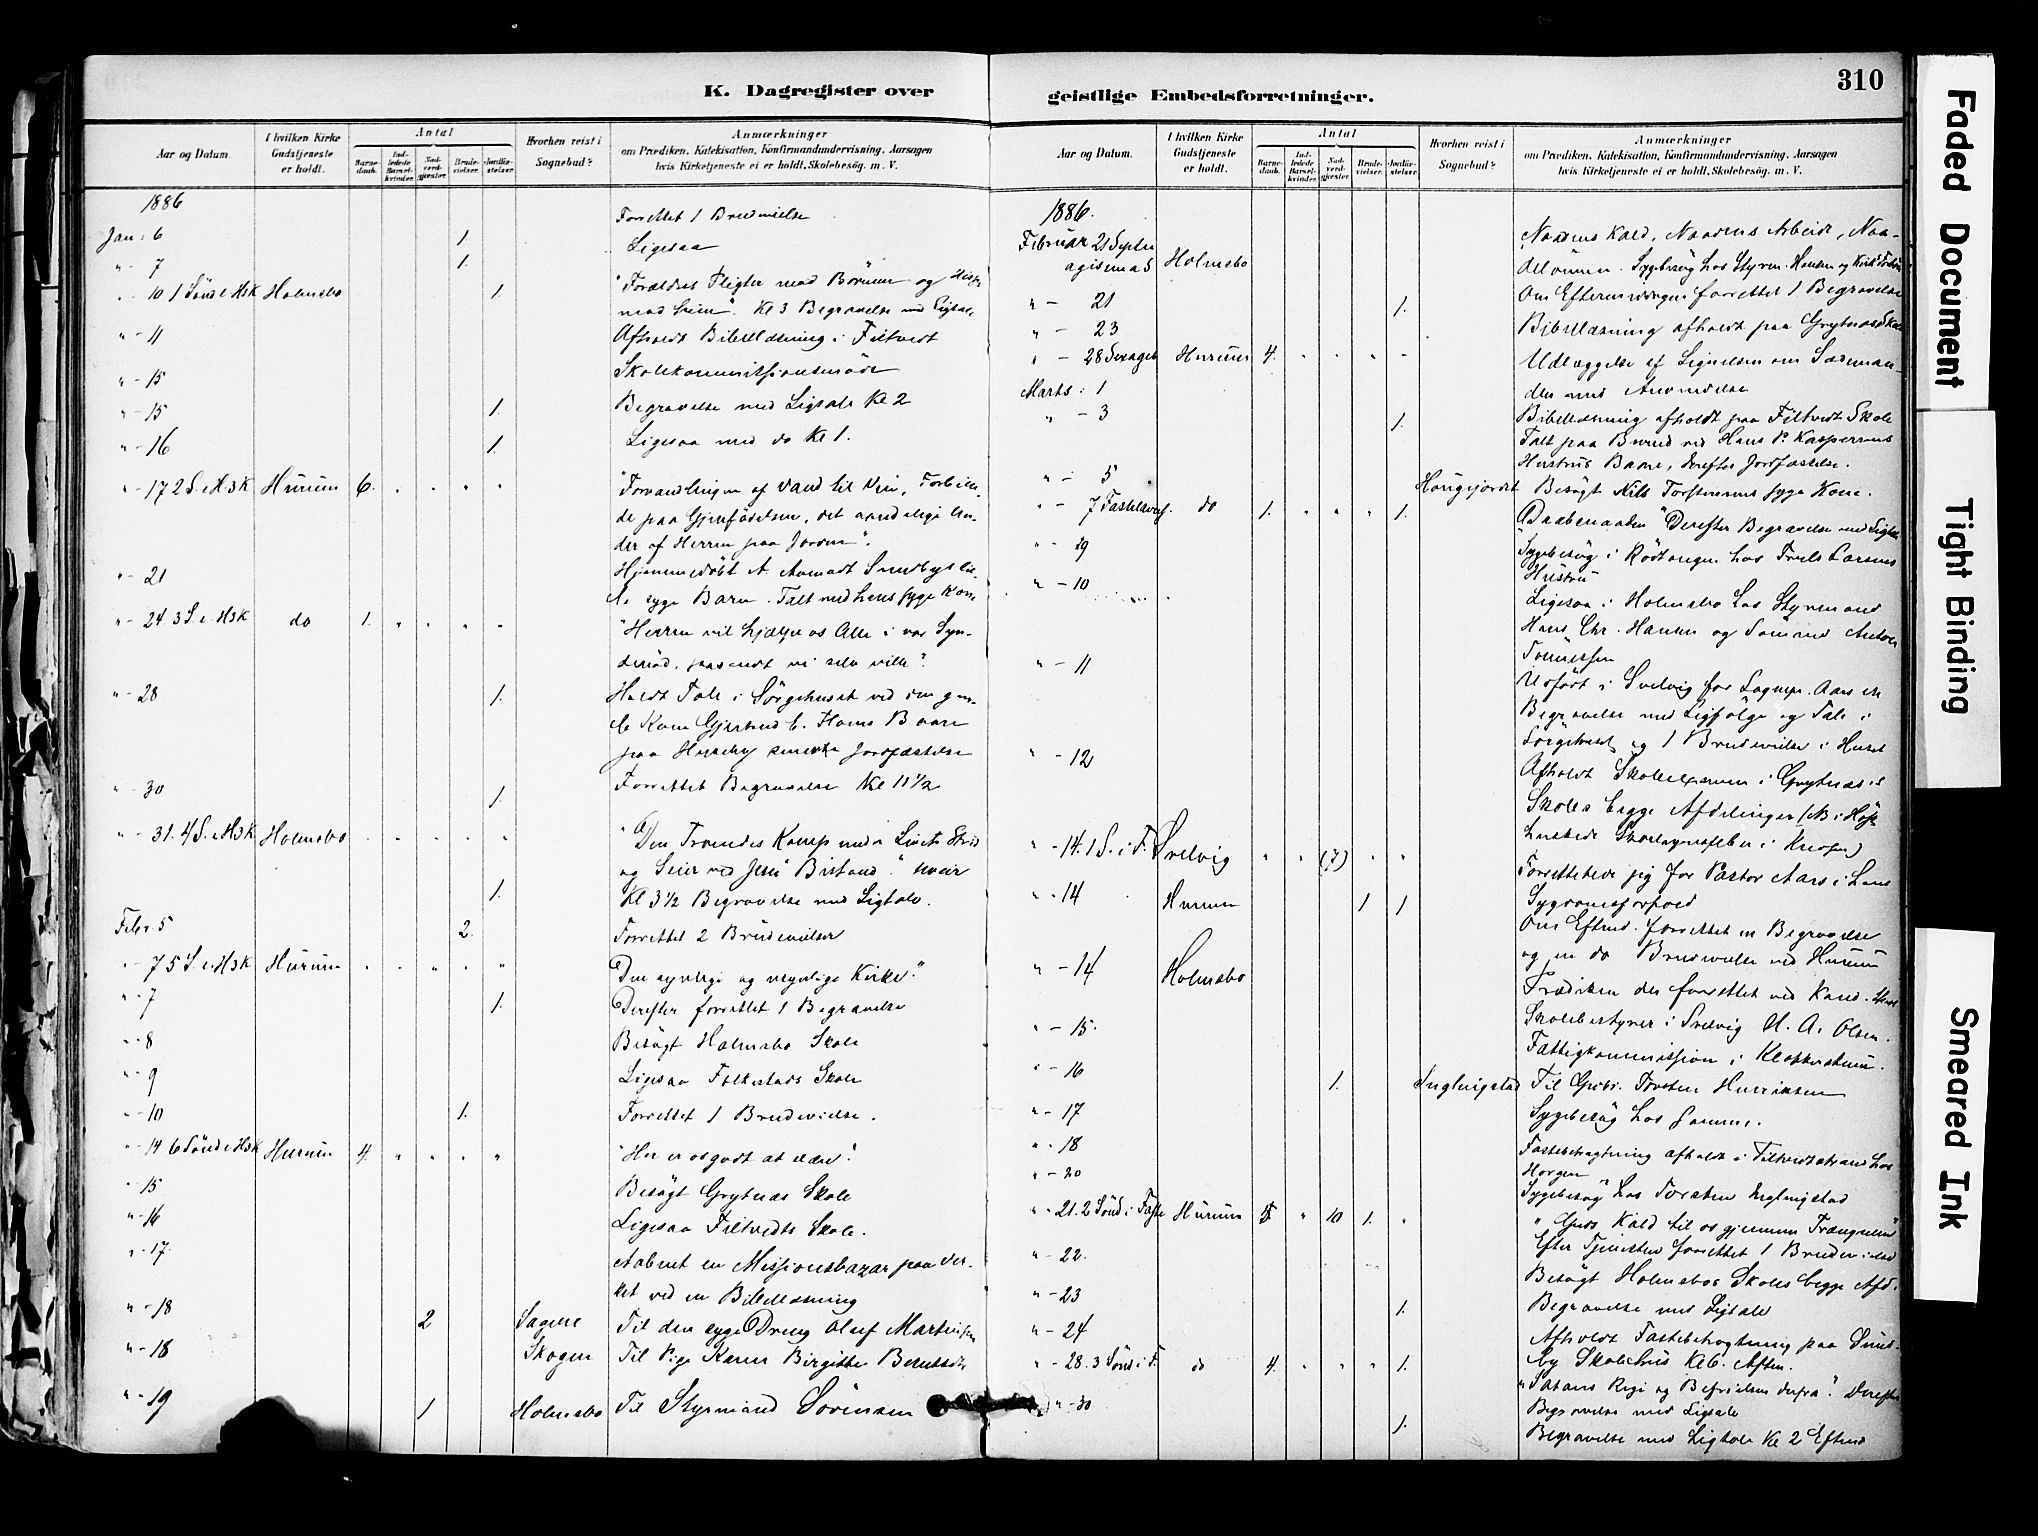 K. Dagregister over
Aar og Datum.
I hvilken Kirke Gudstjeneste er holdt.
Antal
Barnedaab.
Indledede Barselkvinder.
Nadverdgjester.
Brudevielser.
Jordfæstelser.
Hvorhen reist i Sognebud?
Anmærkninger
om Prædiken, Katekisation, Konfirmandundervisning, Aarsagen
hvis Kirketjeneste ei er holdt, Skolebesøg. m. V.
1886
Forrettet 1 Brudevielse
Jan: 6 1.
Ligesaa
" - 7 1.
" - 10 1 Sönd e. H3K Holmsbo 1. "Forældres Pligter mod Börnene og
mod hrem". Kl 3 Begravelse med Ligtale
" - 11 Afholdt Bibellæsning i Filtvedt
" - 15 Skolekommissionsmöde
" - 15 1. Begravelse med Ligtale Kl 2
" - 16 1. Ligesaa med do Kl 1.
" - 17 2 S. e. H3K Hurum 6. " " " " "Forvandlingen af Vand til Vin, Forbille-
de paa Gjenfödelsen, det aandelige Un-
der af Herren paa Jorden".
" - 21 Hjemmedöbt A. Smedbys lil-
le syge Barn. Talt med hans syge Kone
" - 24 3 S. e. H3K do 1. " " " " "Herren vil hjælpe os Alle i vor Syn-
denöd, saasandt vi selv ville".
" - 28 1. Holdt Tale i Sörgehuset ved den gam-
le Kone Gjertrud C. Hans Baare
paa Huseby Jordfæstelse
" - 30 1. Forrettet Begravelse Kl 11½
" - 31. 4 S. e. H3K Holmsbo " " " " " "Den Troendes Kamp under Livets Strid
og Seier ved Jesu Bistand".
1. Kl 3½ Begravelse med Ligtale.
Febr. 5 2. Forrettet 2 Brudevielser
" - 7 5 S. e. H3K Hurum " " " " " Den synlige og usynlige Kirke."
" - 7 1. Derefter forrettet 1 Begravelse
" - 8 Besögt Holmsbo Skole
" - 9 Ligesaa Folkestads Skole
" - 10 1. Forrettet 1 Brudevielse.
" - 14 6 Sönd e H3K Hurum 4. " " " " "Her er os godt at være".
" - 15 Besögt Grytnæs Skole
" - 16 Ligesaa Filtvedts Skole.
" - 17. Aabnet en Missionsbazar paa Ver-
ket ved en Bibellæsning
" - 18 2 Sagene Til den syge Dreng Olaf Martinsen
" - 18 Skogen Til Pige Karen Birgitte Berntsdtr
" - 19 1 Holmsbo Til Styrmand Sörensen
geistlige Embedsforretninger.
310
Aar og Datum.
I hvilken Kirke Gudstjeneste er holdt.
Antal
Barnedaab.
Indledede Barselkvinder.
Nadverdgjester.
Brudevielser.
Jordfæstelser.
Hvorhen reist i Sognebud?
Anmærkninger
om Prædiken, Katekisation, Konfirmandundervisning, Aarsagen
hvis Kirketjeneste ei er holdt, Skolebesøg. m. V.
1886.
Februar 21 Septu- Naadens Kald, Naadens Arbeide, Naa-
agisima S Holmsbo delönnen. Sygebesög hos Styrm. Hansen og
" - 21 1. Om Eftermiddagen forrettet 1 Begravelse
" - 23 Bibellæsning afholdt paa Grytnæs Skole
" - 28 Sexages Hurum 4. " " " " Udlæggelse af Lignelsen om Sædeman-
den med Anvendelse
Marts: 1 Bibellæsning afholdt paa Filtvedt Skole
" - 3 1. Talt paa Burud ved Hans P. Kaspersens
Hustrus Baare, derefter Jordfæstelse.
" - 5 Haugsjordet Besögt Nils Torstensens syge Kone.
" - 7 Fastelavns. do 1. " " " 1. "Daabsnaaden" Derefter Begravelse med Ligtale
" - 9 Sygebesög i Rödtangen hos Truls Larsens
Hustru
" - 10 Ligesaa i Holmsbo hos Styrmand
Hans Chr. Hansen og Sömand Anton
Tönnessen
" - 11 Udfört i Svelvig for Sognepr. Aars en
Begravelse med Ligfölge og Tale i
Sörgehuset og 1 Brudevielse i Huset
" - 12 Afholdt Skoleexamen i Grytnæs
Skoles begge Afdelinger (NB i Höst
herskede Skarlagensfeber i Kredsen)
" - 14. 1 S. i F. Svelvig " " (7) " " Forrettede jeg for Pastor Aars i hans
Sygdomsforfald
" - 14 Hurum 1 1 Om Efterm. forrettet en Begravelse
og en do Brudevielse ved Hurum
" - 14 Holmsbo Prædiken der forrettet ved Kand.
Skolebestyrer i Svelvig H. A. Olsen.
" - 15. Fattigkommission i Klokkerstuen.
" - 16 1. Inglingstad Til Gbr. Torsten Henriksen
" - 17 Sygebesög hos samme.
" - 18 Fastebetragtning afholdt i Filtvedtstrand hos
Horgen
" - 20 Sygebesög hos Torsten Inglingstad
" - 21. 2 Sönd i Faste Hurum 4 " 10 1. " "Guds Kald til os gjennem Trængselen"
Efter Tjenesten forrettet 1 Brudevielse
" - 22. Besögt Holmsbos Skoles begge Afd.
" - 23 1. Begravelse med Ligtale
" - 24 Afholdt Fastebetragtning paa Smed-
by Skolehus Kl 6. Aften.
" - 28. 3 Sönd i F. do 4. " " " 1. "Satans Rige og Befrielsen derfra". Derefter
Begravelse med Ligtale
" - 30 1. Begravelse med Ligtale Kl 2 Efterm
Faded Document
Tight Binding
Smeared Ink